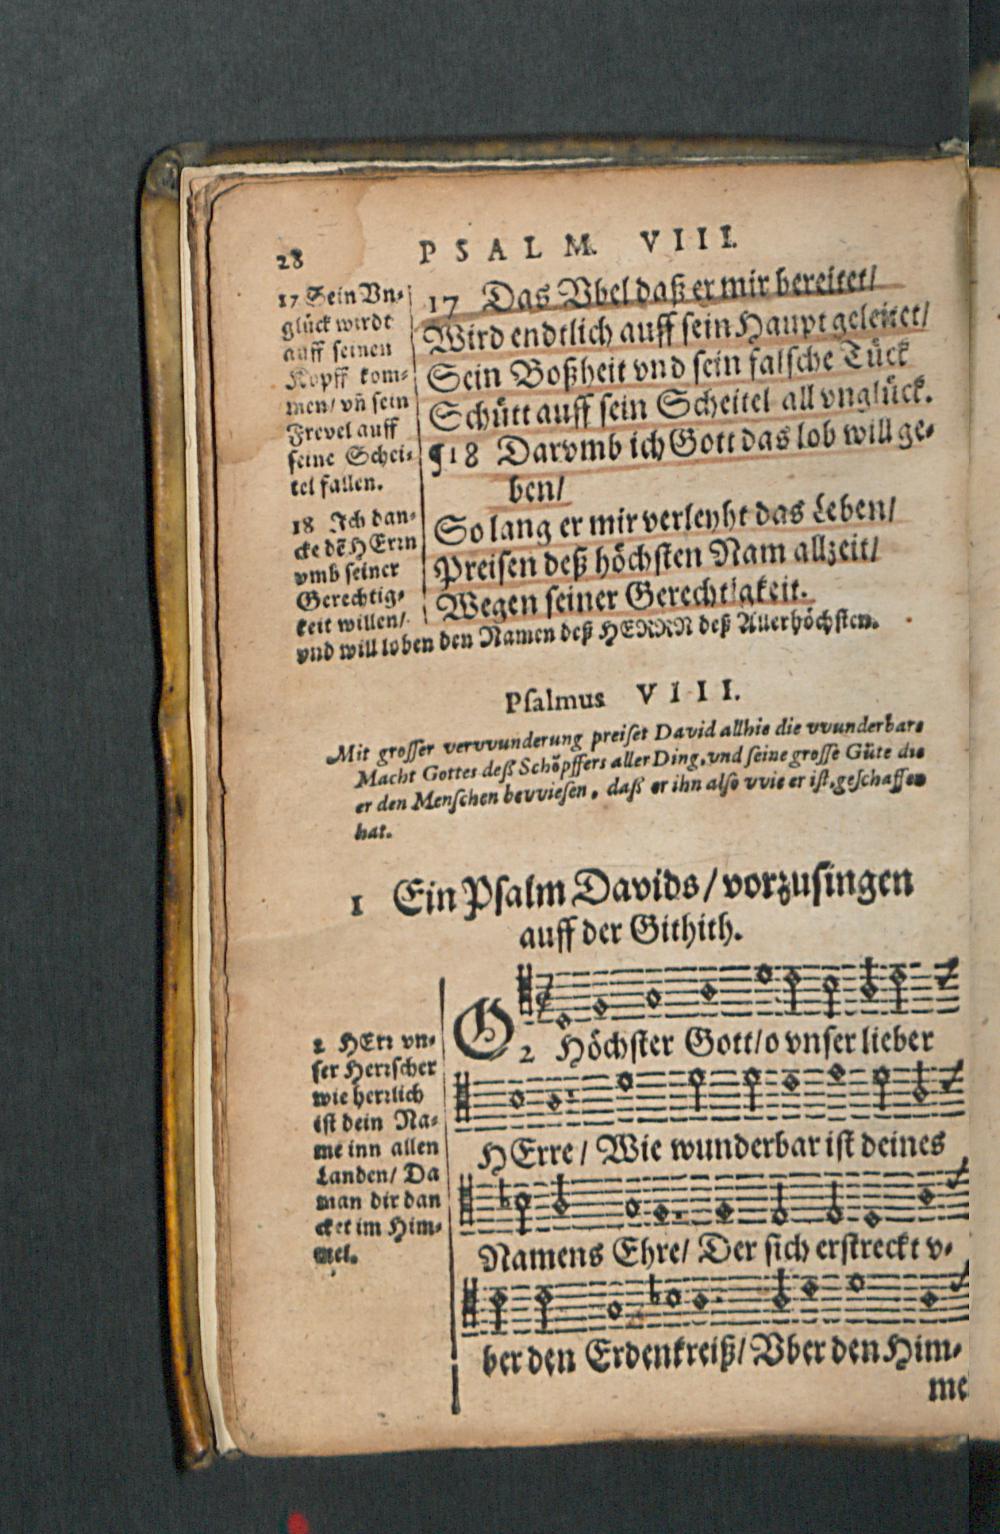 28
PSALM. VIII.
17 Sein Vn-
glück wirdt
auff seinen
Kopff kom-
men/ vñ sein
Frevel auff
seine Schei-
tel fallen.
18 Ich dan-
cke dẽ HErrn
vmb seiner
Gerechtig-
keit willen/
vnd will loben den Namen deß HERRN deß Allerhöchsten.
17 Das Vbel daß er mir bereitet/
Wird endtlich auff sein Haupt geleitet/
Sein Boßheit vnd sein falsche Tück
Schütt auff sein Scheitel all vnglück.
¶18 Darvmb ich Gott das lob will ge-
ben/
So lang er mir verleyht das Leben/
Preisen deß höchsten Nam allzeit/
Wegen seiner Gerechtigkeit.
Psalmus VIII.
Mit grosser vervvunderung preiset David allhie die vvunderbare
Macht Gottes deß Schöpffers aller Ding, vnd seine grosse Güte die
er den Menschen bevviesen, daß er ihn also vvie er ist, geschaffen
hat.
1 Ein Psalm Davids/ vorzusingen
auff der Githith.
2 HErr vn-
ser Herrscher
wie herrlich
ist dein Na-
me inn allen
Landen/ Da
man dir dan
cket im Him-
mel.
O
2 Höchster Gott/ o vnser lieber
HErre/ Wie wunderbar ist deines
Namens Ehre/ Der sich erstreckt v-
ber den Erdenkreiß/ Vber den Him-
me